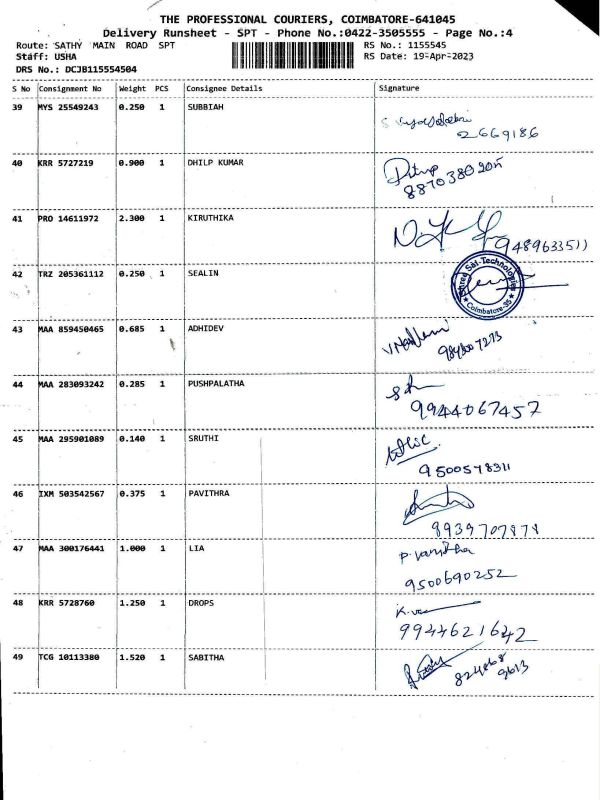 THE PROFESSIONAL COURIERS, COIMBATORE-641045
Delivery Runsheet - SPT - Phone No.:0422-3505555 - Page No.:4
Route: SATHY MAIN ROAD SPT RS No.: 1155545
Staff: USHA RS Date: 19-Apr-2023
DRS No.: DCJB115554504
S No Consignment No Weight PCS Consignee Details Signature
39 MYS 25549243 0.250 1 SUBBIAH
2669186
40 KRR 5727219 0.900 1 DHILP KUMAR
41 PRO 14611972 2.300 1 KIRUTHIKA
9489633511
42 TRZ 205361112 0.250 1 SEALIN
Shree Sai Technologies
Coimbatore-35
43 MAA 859450465 0.685 1 ADHIDEV
44 MAA 283093242 0.285 1 PUSHPALATHA
9944067457
45 MAA 295901089 0.140 1 SRUTHI
9500578311
46 IXM 503542567 0.375 1 PAVITHRA
8939707878
47 MAA 300176441 1.000 1 LIA
9500690252
48 KRR 5728760 1.250 1 DROPS
9944621642
49 TCG 10113380 1.520 1 SABITHA
824868
9613